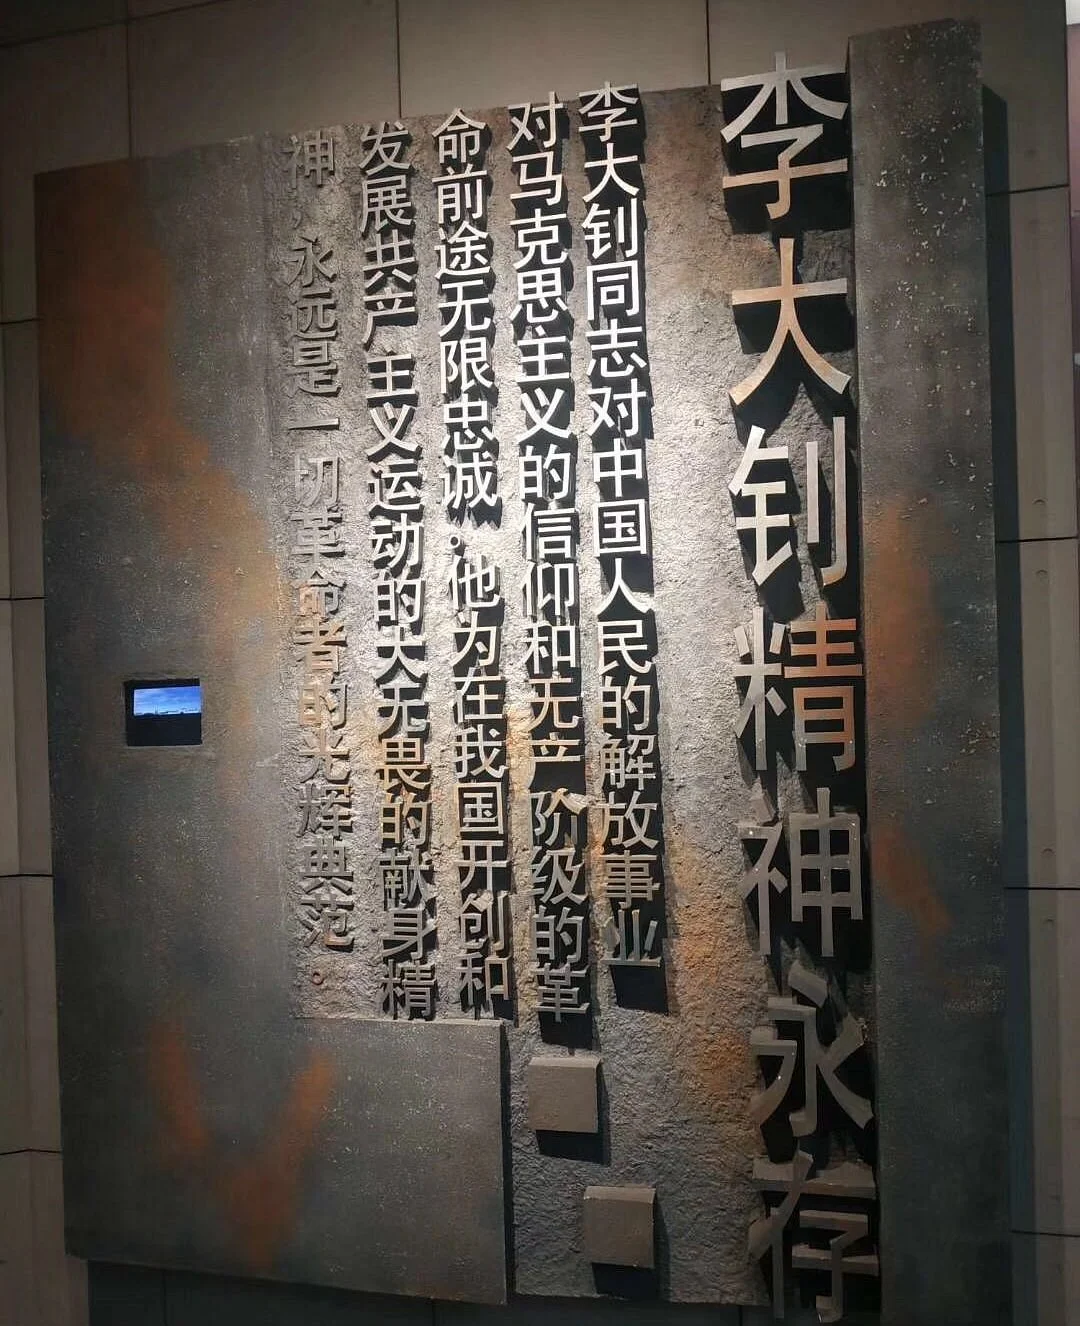 李大钊精神永存
李大钊同志对中国人民的解放事业
对马克思主义的信仰和无产阶级的革
命前途无限忠诚。他为在我国开创和
发展共产主义运动的大无畏的献身精
神，永远是一切革命者的光辉典范。